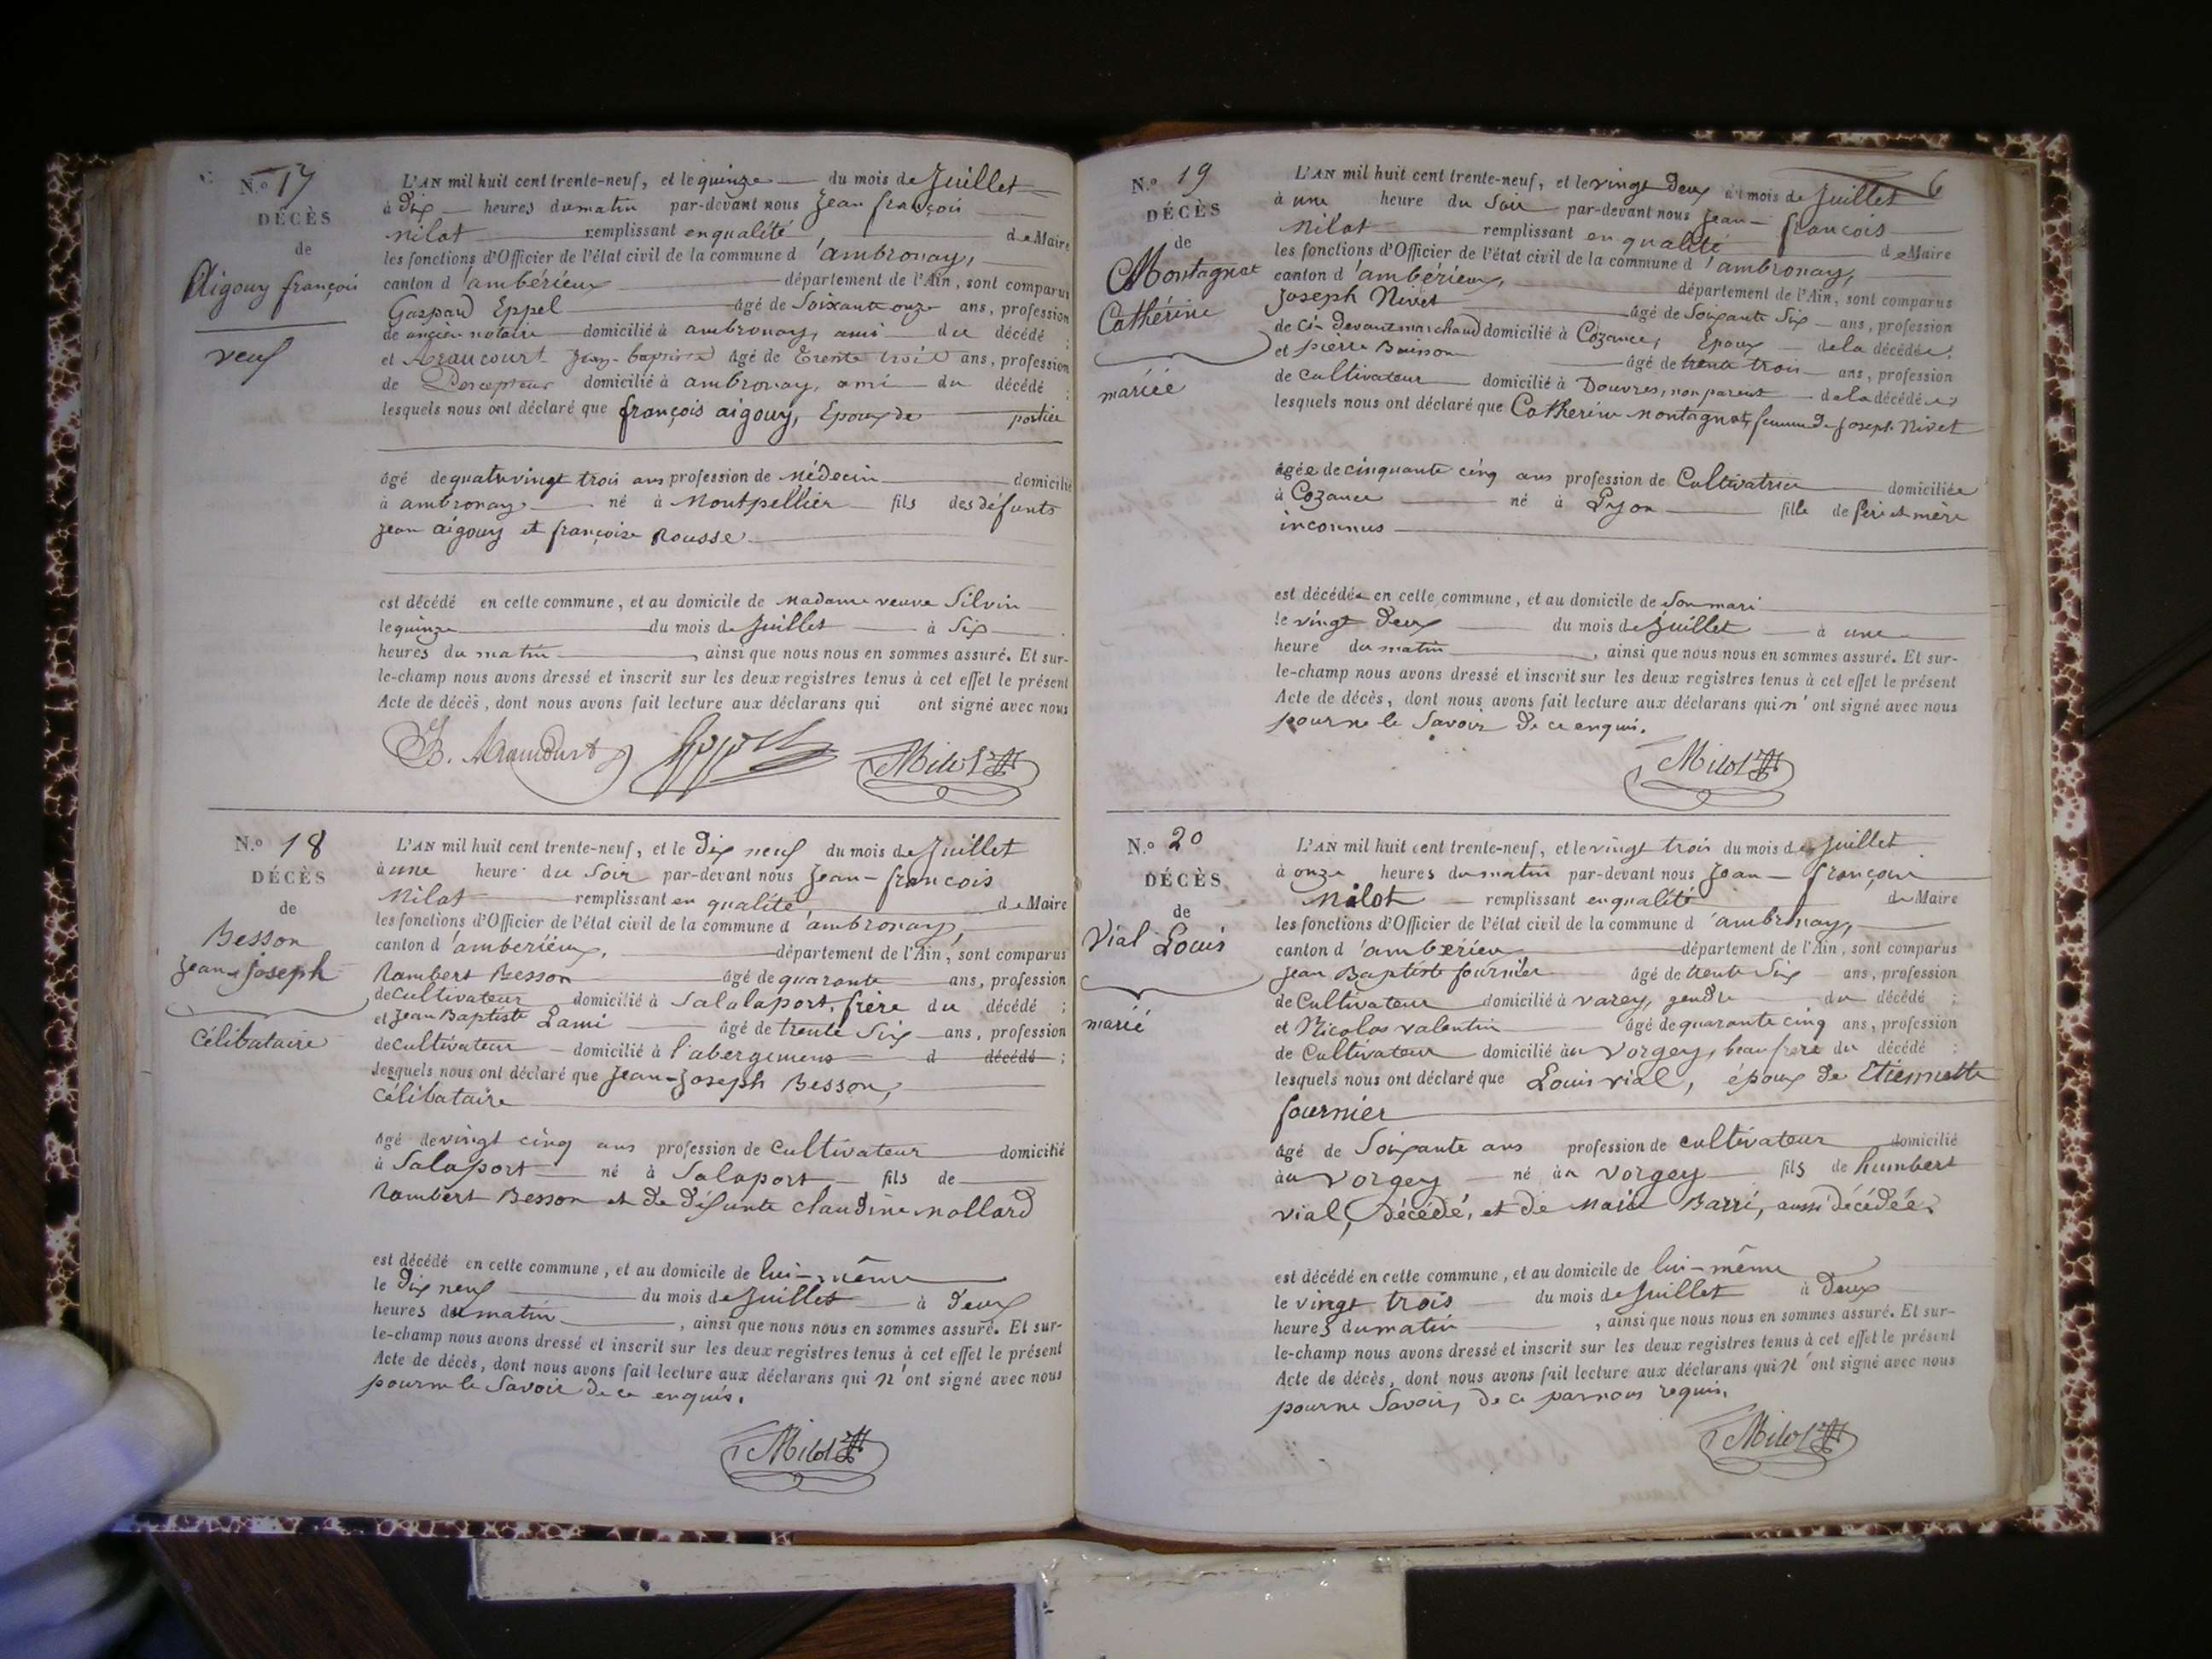 N.º 17
DÉCÈS
de
Aigouy françois
veuf
L'AN mil huit cent trente-neuf, et le quinze du mois de Juillet
à dix heures du matin par-devant nous Jean françois
Milot remplissant en qualité de Maire
les fonctions d'Officier de l'état civil de la commune d'ambronay,
canton d'ambérieux département de l'Ain, sont comparus
Gaspard Eppel âgé de Soixante onze ans, profession
de ancien notaire domicilié à ambronay, ami du décédé ;
et Araucourt Jean-baptiste âgé de trente trois ans, profession
de Percepteur domicilié à ambronay, ami du décédé ;
lesquels nous ont déclaré que françois aigouy, Epoux de portier
âgé de quatre vingt trois ans profession de Médecin domicilié
à ambronay né à Montpellier fils des défunts
Jean aigouy et françoise Rousse
est décédé en cette commune, et au domicile de Madame veuve Silvin
le quinze du mois de Juillet à Six
heures du matin, ainsi que nous nous en sommes assuré. Et sur-
le-champ nous avons dressé et inscrit sur les deux registres tenus à cet effet le présent
Acte de décès, dont nous avons fait lecture aux déclarans qui ont signé avec nous
Milot
N.º 18
DÉCÈS
de
Besson
Jean Joseph
Célibataire
L'AN mil huit cent trente-neuf, et le dix neuf du mois de Juillet
à une heure du Soir par-devant nous Jean-françois
Milot remplissant en qualité de Maire
les fonctions d'Officier de l'état civil de la commune d'ambronay,
canton d'amberieux, département de l'Ain, sont comparus
Rambert Besson âgé de quarante ans, profession
de cultivateur domicilié à Salalaport, frère du décédé ;
et Jean Baptiste Lami âgé de trente Six ans, profession
de cultivateur domicilié à l'abergemens d décédé ;
lesquels nous ont déclaré que Jean-Joseph Besson,
Célibataire
âgé de vingt cinq ans profession de Cultivateur domicilié
à Salaport né à Salaport fils de
Rambert Besson et de défunte claudine mollard
est décédé en cette commune, et au domicile de lui-même
le dix neuf du mois de Juillet à deux
heures du matin, ainsi que nous nous en sommes assuré. Et sur-
le-champ nous avons dressé et inscrit sur les deux registres tenus à cet effet le présent
Acte de décès, dont nous avons fait lecture aux déclarans qui n'ont signé avec nous
pour ne le Savoir de ce enquis.
Milot
6
N.º 19
DÉCÈS
de
Montagnat
Cathérine
mariée
L'AN mil huit cent trente-neuf, et le vingt deux du mois de Juillet
à une heure du Soir par-devant nous Jean-françois
Milot remplissant en qualité de Maire
les fonctions d'Officier de l'état civil de la commune d'ambronay,
canton d'ambérieux, département de l'Ain, sont comparus
Joseph Nivet âgé de Soixante Six ans, profession
de ci-devant marchand domicilié à Cozance, Epoux de la décédée ;
et pierre Buisson âgé de trente trois ans, profession
de cultivateur domicilié à Douvres, non parent de la décédée
lesquels nous ont déclaré que Catherine montagnat, femme de Joseph Nivet
âgée de cinquante cinq ans profession de Cultivatrice domiciliée
à Cozance né à Lyon fille de père et mère
inconnus
est décédée en cette commune, et au domicile de Son mari
le vingt deux du mois de Juillet à une
heure du matin, ainsi que nous nous en sommes assuré. Et sur-
le-champ nous avons dressé et inscrit sur les deux registres tenus à cet effet le présent
Acte de décès, dont nous avons fait lecture aux déclarans qui n'ont signé avec nous
pour ne le Savoir de ce enquis.
Milot
N.º 20
DÉCÈS
de
Vial Louis
marié
L'AN mil huit cent trente-neuf, et le vingt trois du mois de Juillet
à onze heures du matin par-devant nous Jean-françois
Milot remplissant en qualité de Maire
les fonctions d'Officier de l'état civil de la commune d'ambronay,
canton d'ambérieu département de l'Ain, sont comparus
Jean Baptiste fournier âgé de trente Six ans, profession
de Cultivateur domicilié à varey, gendre du décédé ;
et Nicolas valentin âgé de quarante cinq ans, profession
de Cultivateur domicilié au Vorgey, beau frere du décédé ;
lesquels nous ont déclaré que Louis vial, époux de Etiennette
fournier
âgé de Soixante ans profession de cultivateur domicilié
au Vorgey né au Vorgey fils de humbert
vial, décédé, et de Marie Barri, aussi décédée.
est décédé en cette commune, et au domicile de lui-même
le vingt trois du mois de Juillet à Deux
heures du matin, ainsi que nous nous en sommes assuré. Et sur-
le-champ nous avons dressé et inscrit sur les deux registres tenus à cet effet le présent
Acte de décès, dont nous avons fait lecture aux déclarans qui n'ont signé avec nous
pour ne Savoir, de ce par nous requis.
Milot